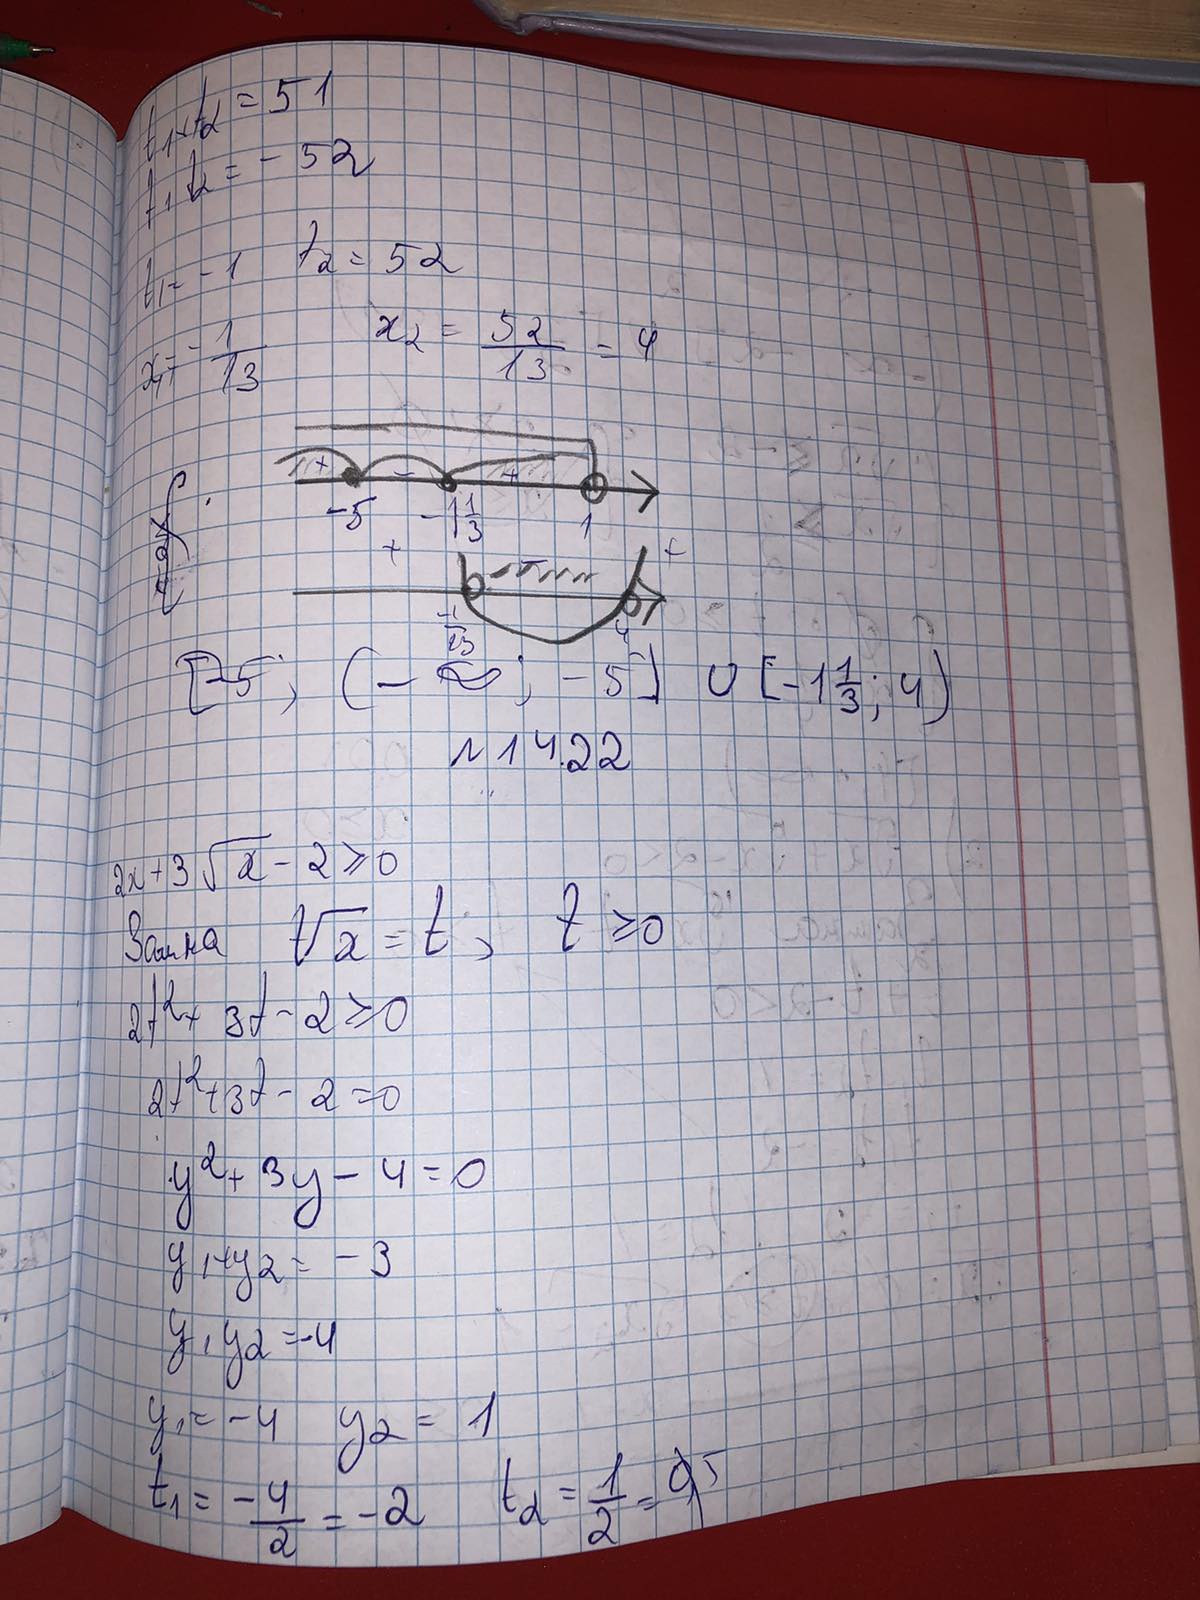 t₁+t₂ = 51
t₁t₂ = -52
t₁ = -1 t₂ = 52
x₁ = -1/13 x₂ = 52/13 = 4
+ - +
-5 -1 1/3 1
+ - +
-1/13 4
[-5; (-∞; -5] ∪ [-1 1/3; 4)
№14.22
2x+3√x-2≥0
Заміна √x = t, t ≥0
2t²+ 3t-2≥0
2t²+3t-2=0
y²+3y-4=0
y₁+y₂=-3
y₁y₂=-4
y₁=-4 y₂=1
t₁=-4/2=-2 t₂=1/2=0,5